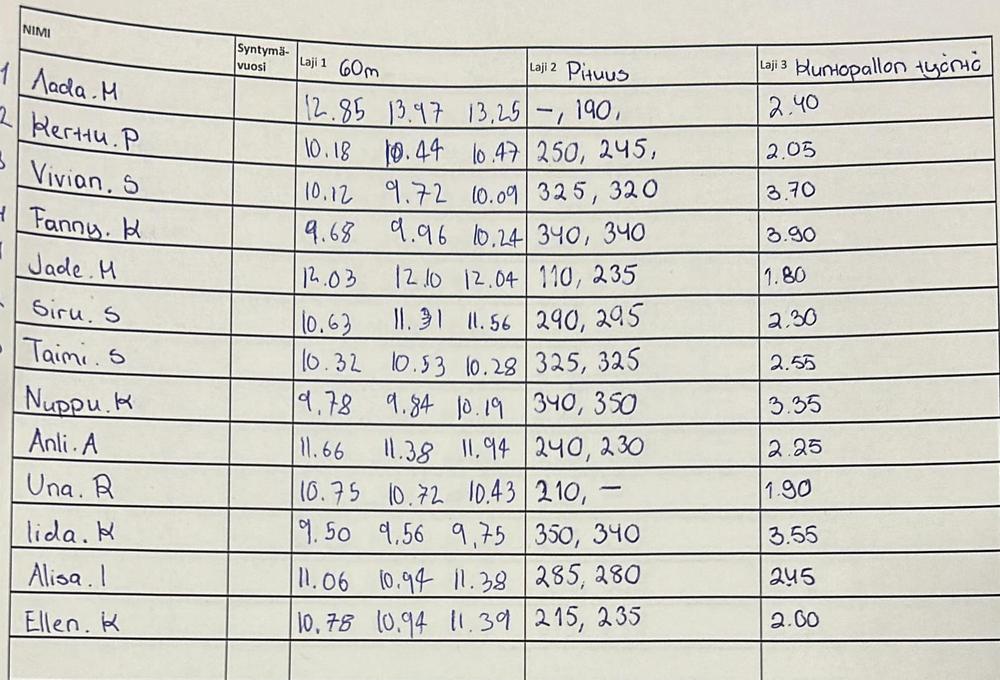 NIMI Syntymä-vuosi Laji 1 60m Laji 2 Pituus Laji 3 Kuntopallon työntö
1 Aada.H 12.85 13.97 13.25 -, 190, 2.40
2 Kerttu.P 10.18 10.44 10.47 250, 245, 2.05
Vivian.S 10.12 9.72 10.09 325, 320 3.70
Fanny.K 9.68 9.96 10.24 340, 340 3.90
Jade.H 12.03 12.10 12.04 110, 235 1.80
Siru.S 10.63 11.31 11.56 290, 295 2.30
Taimi.S 10.32 10.53 10.28 325, 325 2.55
Nuppu.K 9.78 9.84 10.19 340, 350 3.35
Anli.A 11.66 11.38 11.94 240, 230 2.25
Una.R 10.75 10.72 10.43 210, - 1.90
Iida.K 9.50 9.56 9,75 350, 340 3.55
Alisa.I 11.06 10.94 11.38 285, 280 245
Ellen.K 10.78 10.94 11.39 215, 235 2.00